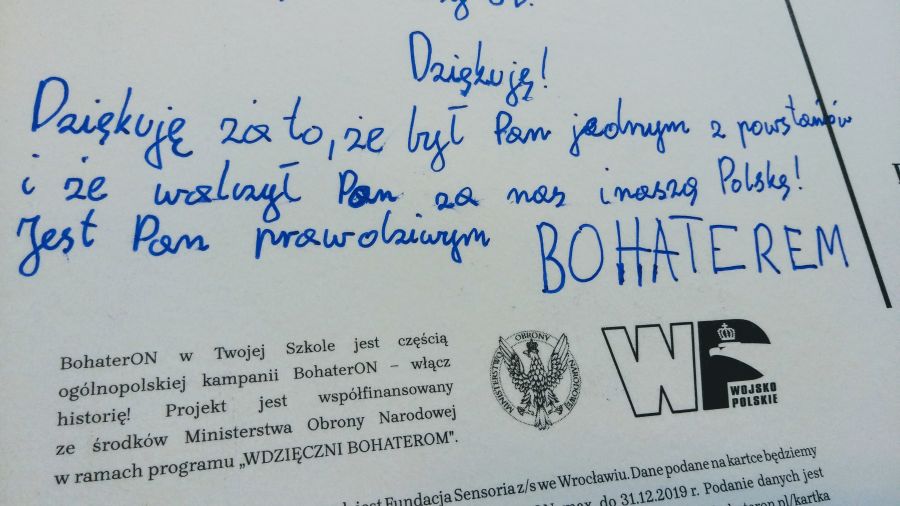 Dziękuję!
Dziękuję za to, że był Pan jednym z powstańów
i że walczył Pan za nas i naszą Polskę!
Jest Pan prawdziwym BOHATEREM
BohaterON w Twojej Szkole jest częścią
ogólnopolskiej kampanii BohaterON – włącz
historię! Projekt jest współfinansowany
ze środków Ministerstwa Obrony Narodowej
w ramach programu „WDZIĘCZNI BOHATEROM".
MINISTERSTWO OBRONY NARODOWEJ
WP
WOJSKO
POLSKIE
jest Fundacja Sensoria z/s we Wrocławiu. Dane podane na kartce będziemy
max. do 31.12.2019 r. Podanie danych jest
/kartka